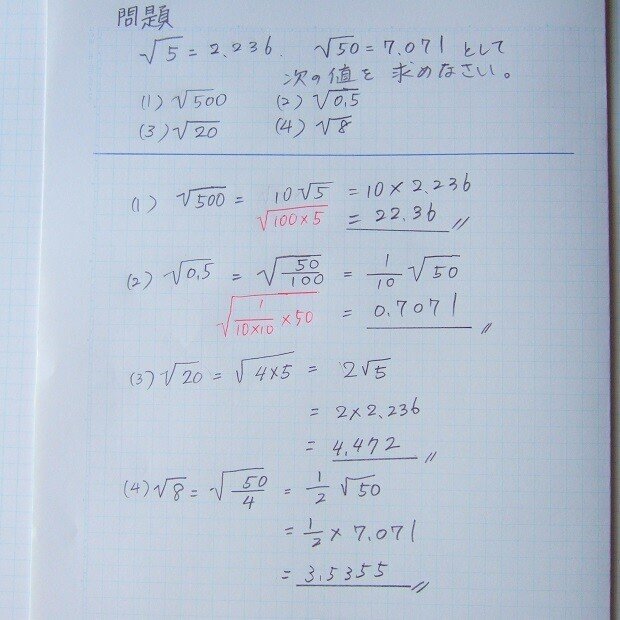 問題
√5 = 2.236. √50 = 7.071 として
次の値を求めなさい。
(1) √500 (2) √0.5
(3) √20 (4) √8
(1) √500 = 10√5 = 10 × 2.236
√100×5 = 22.36
(2) √0.5 = √50/100 = 1/10 √50
√1/10×10 × 50 = 0.7071
(3) √20 = √4×5 = 2√5
= 2 × 2.236
= 4.472
(4) √8 = √50/4 = 1/2 √50
= 1/2 × 7.071
= 3.5355